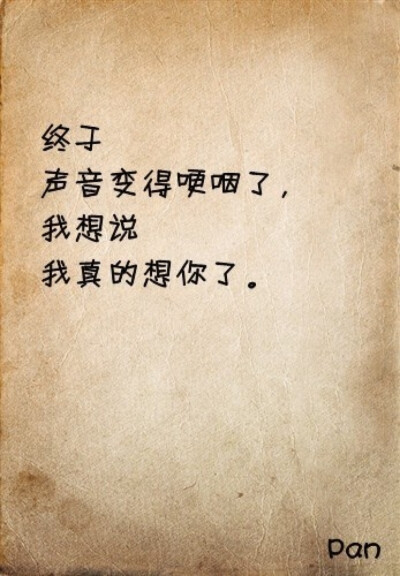 终于
声音变得哽咽了，
我想说
我真的想你了。
Pan